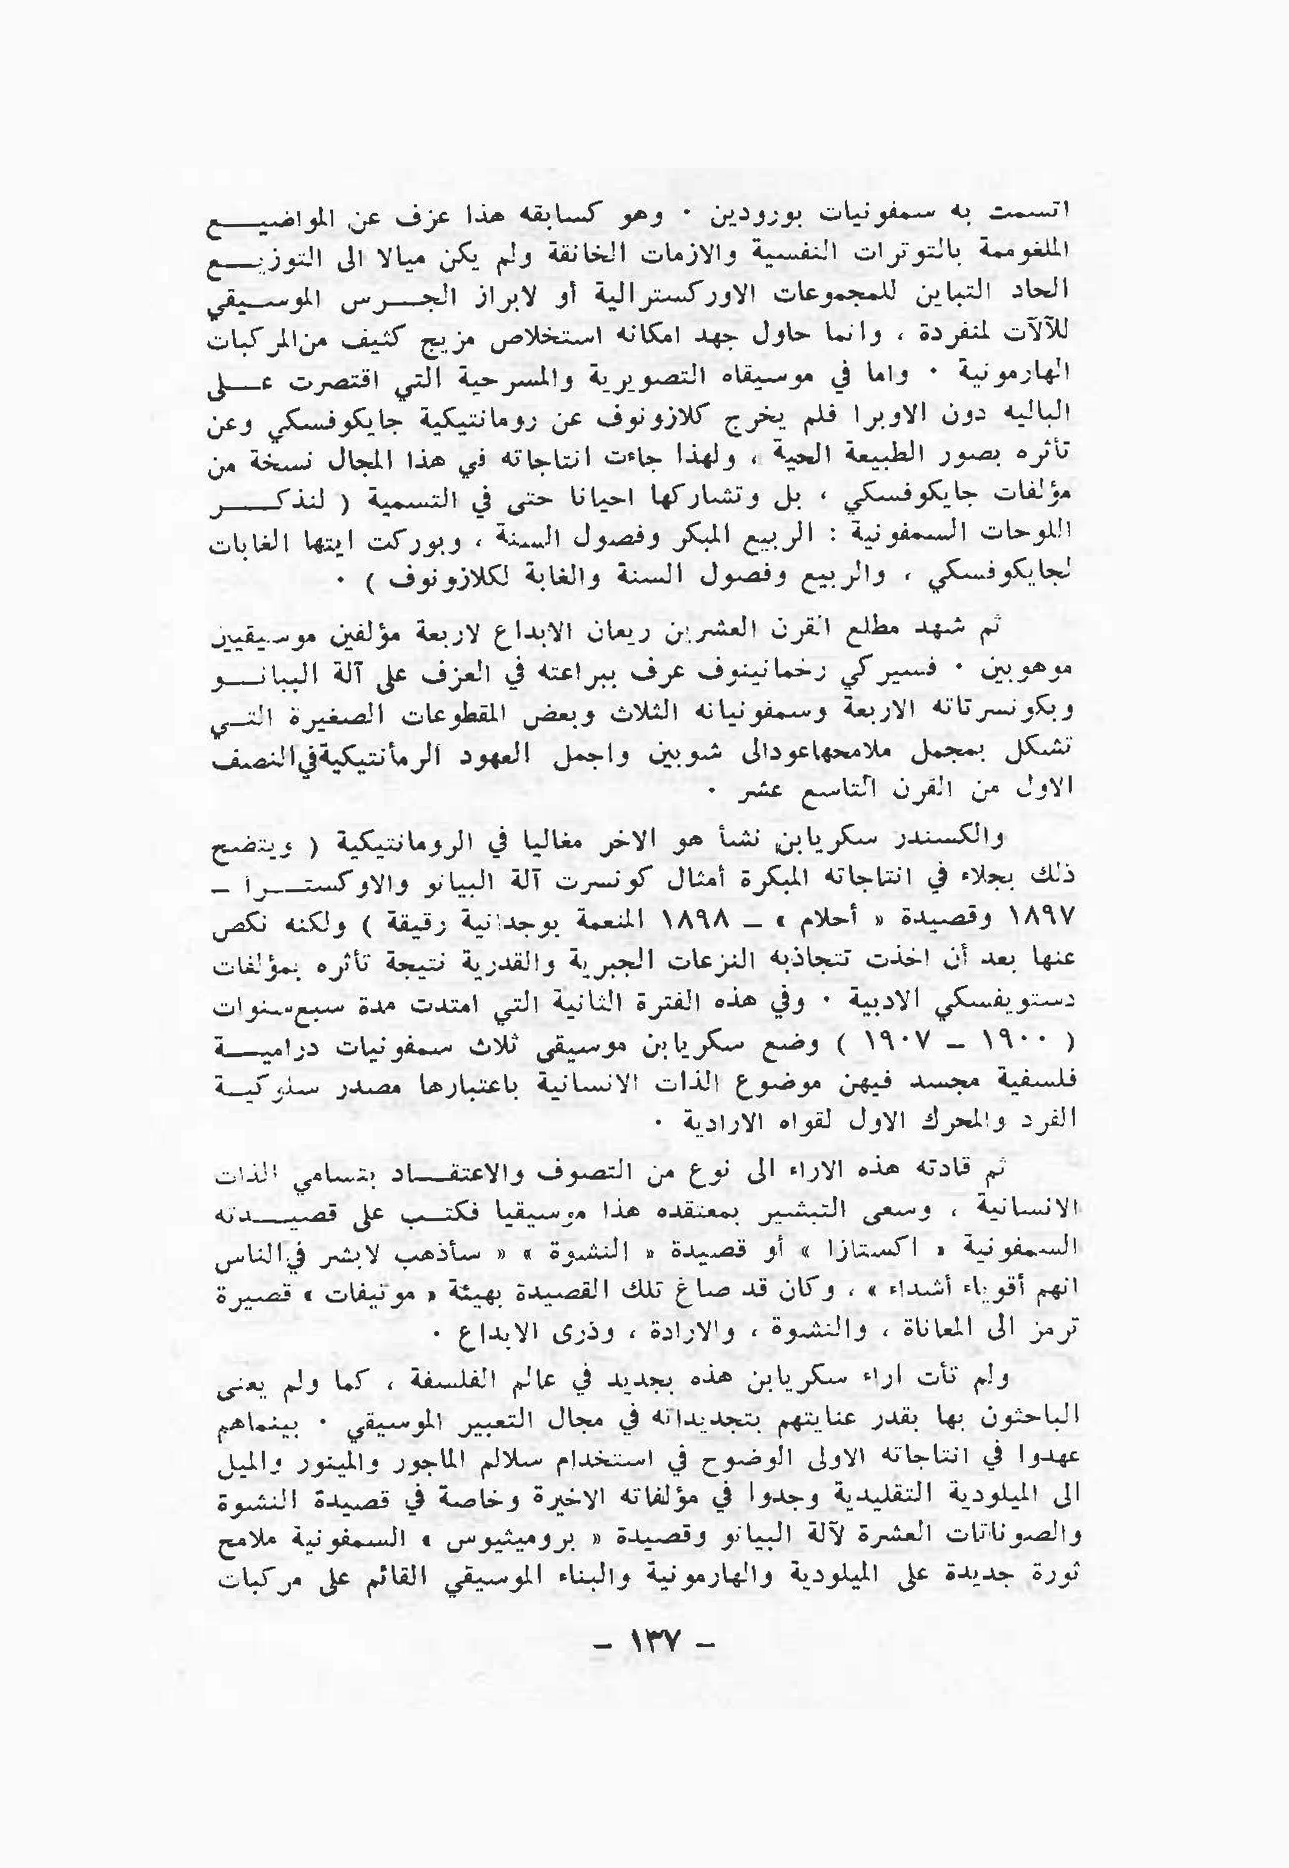 اتسمت به سمفونيات بورودين ٠ وهو كسابقه هذا عزف عن المواضيــع
الملغومة بالتوترات النفسية والازمات الخانقة ولم يكن ميالا الى التوزيــع
الحاد التباين للمجموعات الاوركسترالية أو لابراز الجــرس الموســيقي
للآلآت لمنفردة ، وانما حاول جهد امكانه استخلاص مزيج كثيف من المركبات
الهارمونية ٠ واما في موسيقاه التصويرية والمسرحية التي اقتصرت عــلى
الباليه دون الاوبرا فلم يخرج كلازونوف عن رومانتيكية جايكوفسكي وعن
تأثره بصور الطبيعة الحية ، ولهذا جاءت انتاجاته في هذا المجال نسخة من
مؤلفات جايكوفسكي ، بل وتشاركها احيانا حتى في التسمية ( لنذكــر
اللوحات السمفونية : الربيع المبكر وفصول السنة ، وبوركت ايتها الغابات
لجايكوفسكي ، والربيع وفصول السنة والغابة لكلازونوف ) ٠
ثم شهد مطلع القرن العشرين ريعان الابداع لاربعة مؤلفين موسيقيين
موهوبين ٠ فسيركي رخمانينوف عرف ببراعته في العزف على آلة البيانــو
وبكونسرتاته الاربعة وسمفونياته الثلاث وبعض المقطوعات الصغيرة التــي
تشكل بمجمل ملامحها عودا الى شوبين واجمل العهود الرمأنتيكية في النصف
الاول من القرن التاسع عشر ٠
والكسندر سكريابن نشأ هو الاخر مغاليا في الرومانتيكية ( ويتضح
ذلك بجلاء في انتاجاته المبكرة أمثال كونسرت آلة البيانو والاوكستــرا –
١٨٩٧ وقصيدة « أحلام » – ١٨٩٨ المنعمة بوجدانية رقيقة ) ولكنه نكص
عنها بعد أن اخذت تتجاذبه النزعات الجبرية والقدرية نتيجة تأثره بمؤلفات
دستويفسكي الادبية ٠ وفي هذه الفترة الثانية التي امتدت مدة سبع سنوات
( ١٩٠٠ – ١٩٠٧ ) وضع سكريابن موسيقى ثلاث سمفونيات دراميــة
فلسفية مجسد فيهن موضوع الذات الانسانية باعتبارها مصدر سلوكيــة
الفرد والمحرك الاول لقواه الارادية ٠
ثم قادته هذه الاراء الى نوع من التصوف والاعتقــاد بتسامي الذات
الانسانية ، وسعى التبشير بمعتقده هذا موسيقيا فكتــب على قصيــدته
السمفونية « اكستازا » أو قصيدة « النشوة » « سأذهب لابشر في الناس
انهم أقوياء أشداء » ، وكان قد صاغ تلك القصيدة بهيئة « موتيفات » قصيرة
ترمز الى المعاناة ، والنشوة ، والارادة ، وذرى الابداع ٠
ولم تأت اراء سكريابن هذه بجديد في عالم الفلسفة ، كما ولم يعنى
الباحثون بها بقدر عنايتهم بتجديداته في مجال التعبير الموسيقي ٠ بينماهم
عهدوا في انتاجاته الاولى الوضوح في استخدام سلالم الماجور والمينور والميل
الى الميلودية التقليدية وجدوا في مؤلفاته الاخيرة وخاصة في قصيدة النشوة
والصوناتات العشرة لآلة البيانو وقصيدة « بروميثيوس » السمفونية ملامح
ثورة جديدة على الميلودية والهارمونية والبناء الموسيقي القائم على مركبات
– ١٣٧ –